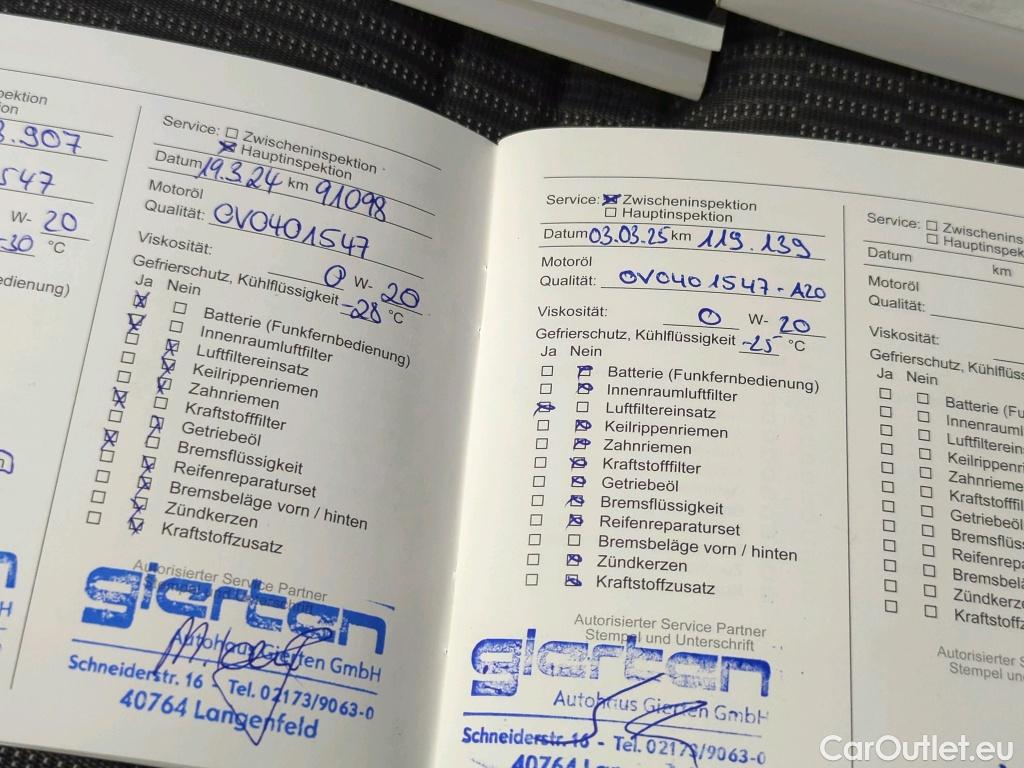 pektion
ion
3.907
547
W- 20
-30 °C
dienung)
Service: Zwischeninspektion
Hauptinspektion
Datum 19.3.24 km 91098
Motoröl
Qualität: OVO401547
Viskosität: 0 W- 20
Gefrierschutz, Kühlflüssigkeit -28 °C
Ja Nein
Batterie (Funkfernbedienung)
Innenraumluftfilter
Luftfiltereinsatz
Keilrippenriemen
Zahnriemen
Kraftstofffilter
Getriebeöl
Bremsflüssigkeit
Reifenreparaturset
Bremsbeläge vorn / hinten
Zündkerzen
Kraftstoffzusatz
Autorisierter Service Partner
Stempel und Unterschrift
gierten
Autohaus Gierten GmbH
Schneiderstr. 16 - Tel. 02173/9063-0
40764 Langenfeld
Service: Zwischeninspektion
Hauptinspektion
Datum 03.03.25 km 119.139
Motoröl
Qualität: OVO401547-A20
Viskosität: 0 W- 20
Gefrierschutz, Kühlflüssigkeit -25 °C
Ja Nein
Batterie (Funkfernbedienung)
Innenraumluftfilter
Luftfiltereinsatz
Keilrippenriemen
Zahnriemen
Kraftstofffilter
Getriebeöl
Bremsflüssigkeit
Reifenreparaturset
Bremsbeläge vorn / hinten
Zündkerzen
Kraftstoffzusatz
Autorisierter Service Partner
Stempel und Unterschrift
gierten
Autohaus Gierten GmbH
Schneiderstr. 16 - Tel. 02173/9063-0
40764 Langenfeld
Service: Zwischenins
Hauptinspek
Datum km
Motoröl
Qualität:
Viskosität:
Gefrierschutz, Kühlflüss
Ja Nein
Batterie (Funk
Innenrauml
Luftfilterein
Keilrippenri
Zahnrieme
Kraftstofffil
Getriebeöl
Bremsflüss
Reifenrepa
Bremsbelä
Zündkerze
Kraftstoffz
Autorisierter
Stempel un
CarOutlet.eu